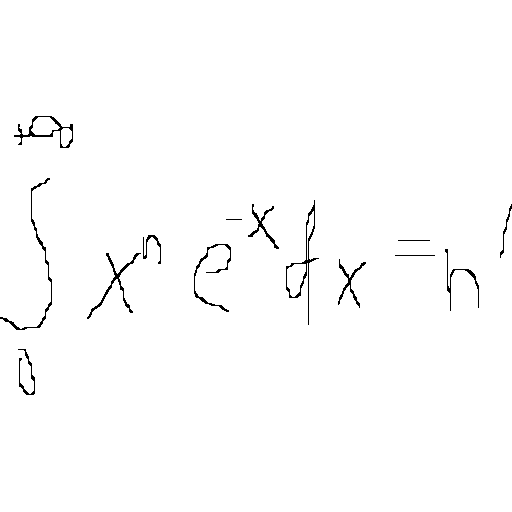 ∫₀^{+∞} xⁿ e^{-x} dx = n'